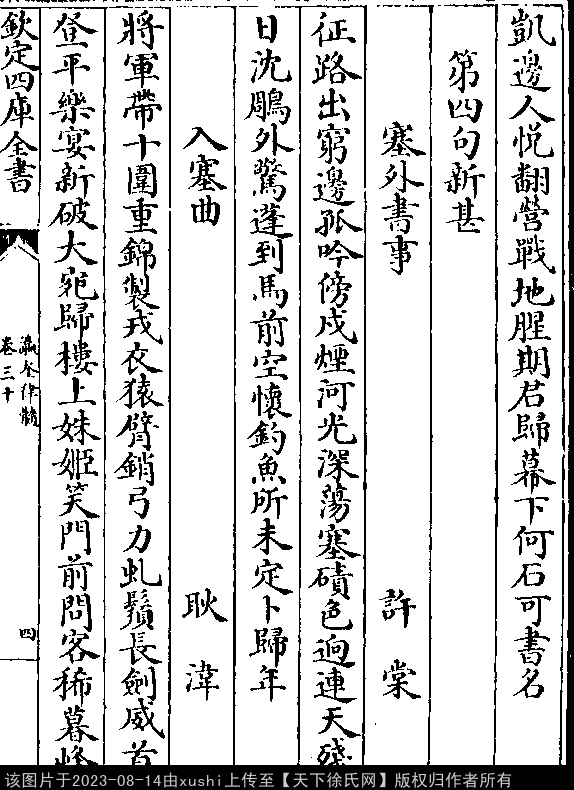 凱邊人悅翻營戰地腥期君歸幕下何石可書名
第四句新甚
塞外書事 許棠
征路出窮邊孤吟傍戍煙河光深蕩塞磧色迥連天殘
日沈鵰外驚蓬到馬前空懷釣魚所未定卜歸年
入塞曲 耿湋
將軍帶十圍重錦製戎衣猿臂銷弓力虬鬚長劍威首
登平樂宴新破大宛歸樓上姝姬笑門前問客稀暮烽
欽定四庫全書
瀛奎律髓
卷三十
四
该图片于2023-08-14由xushi上传至【天下徐氏网】版权归作者所有